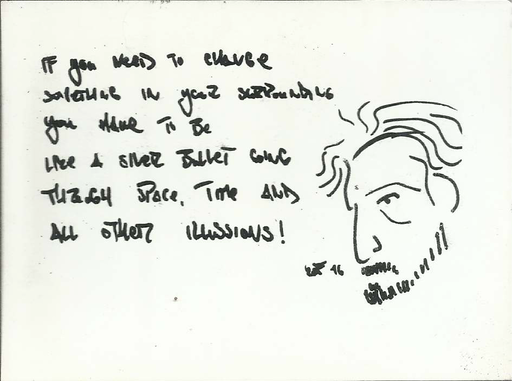 IF you NEED TO CHANGE
SOMETHING IN YOUR SURROUNDING
YOU HAVE TO BE
LIKE A SILVER BULLET GOING
THROUGH SPACE, TIME AND
ALL OTHER ILLUSSIONS!
16